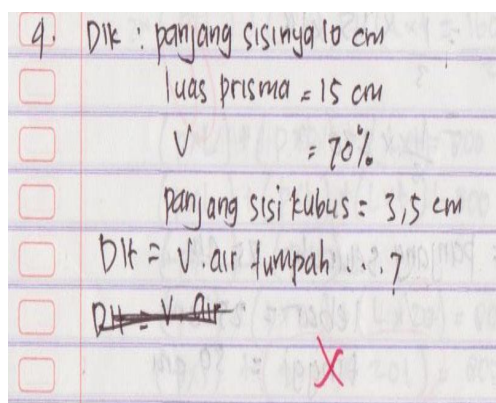 4. Dik : panjang sisinya 10 cm
luas prisma = 15 cm
V = 70%
panjang sisi kubus = 3,5 cm
Dit = V. air tumpah...?
Dit = V air
X